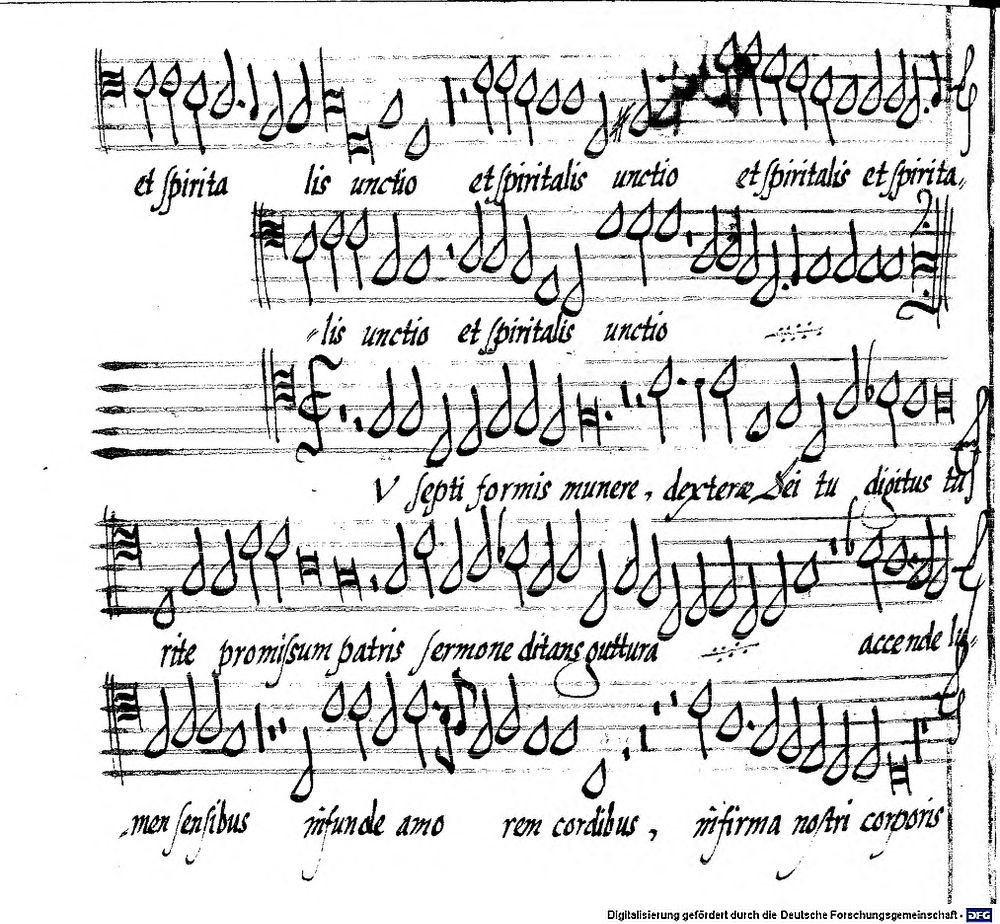 et spirita lis unctio et spiritalis unctio et spiritalis et spirita,,
„lis unctio et spiritalis unctio
V septi formis munere, dexteræ Dei tu digitus tu
rite promissum patris sermone ditans guttura accende lu-
„men sensibus infunde amo rem cordibus, infirma nostri corporis
Digitalisierung gefördert durch die Deutsche Forschungsgemeinschaft - DFG